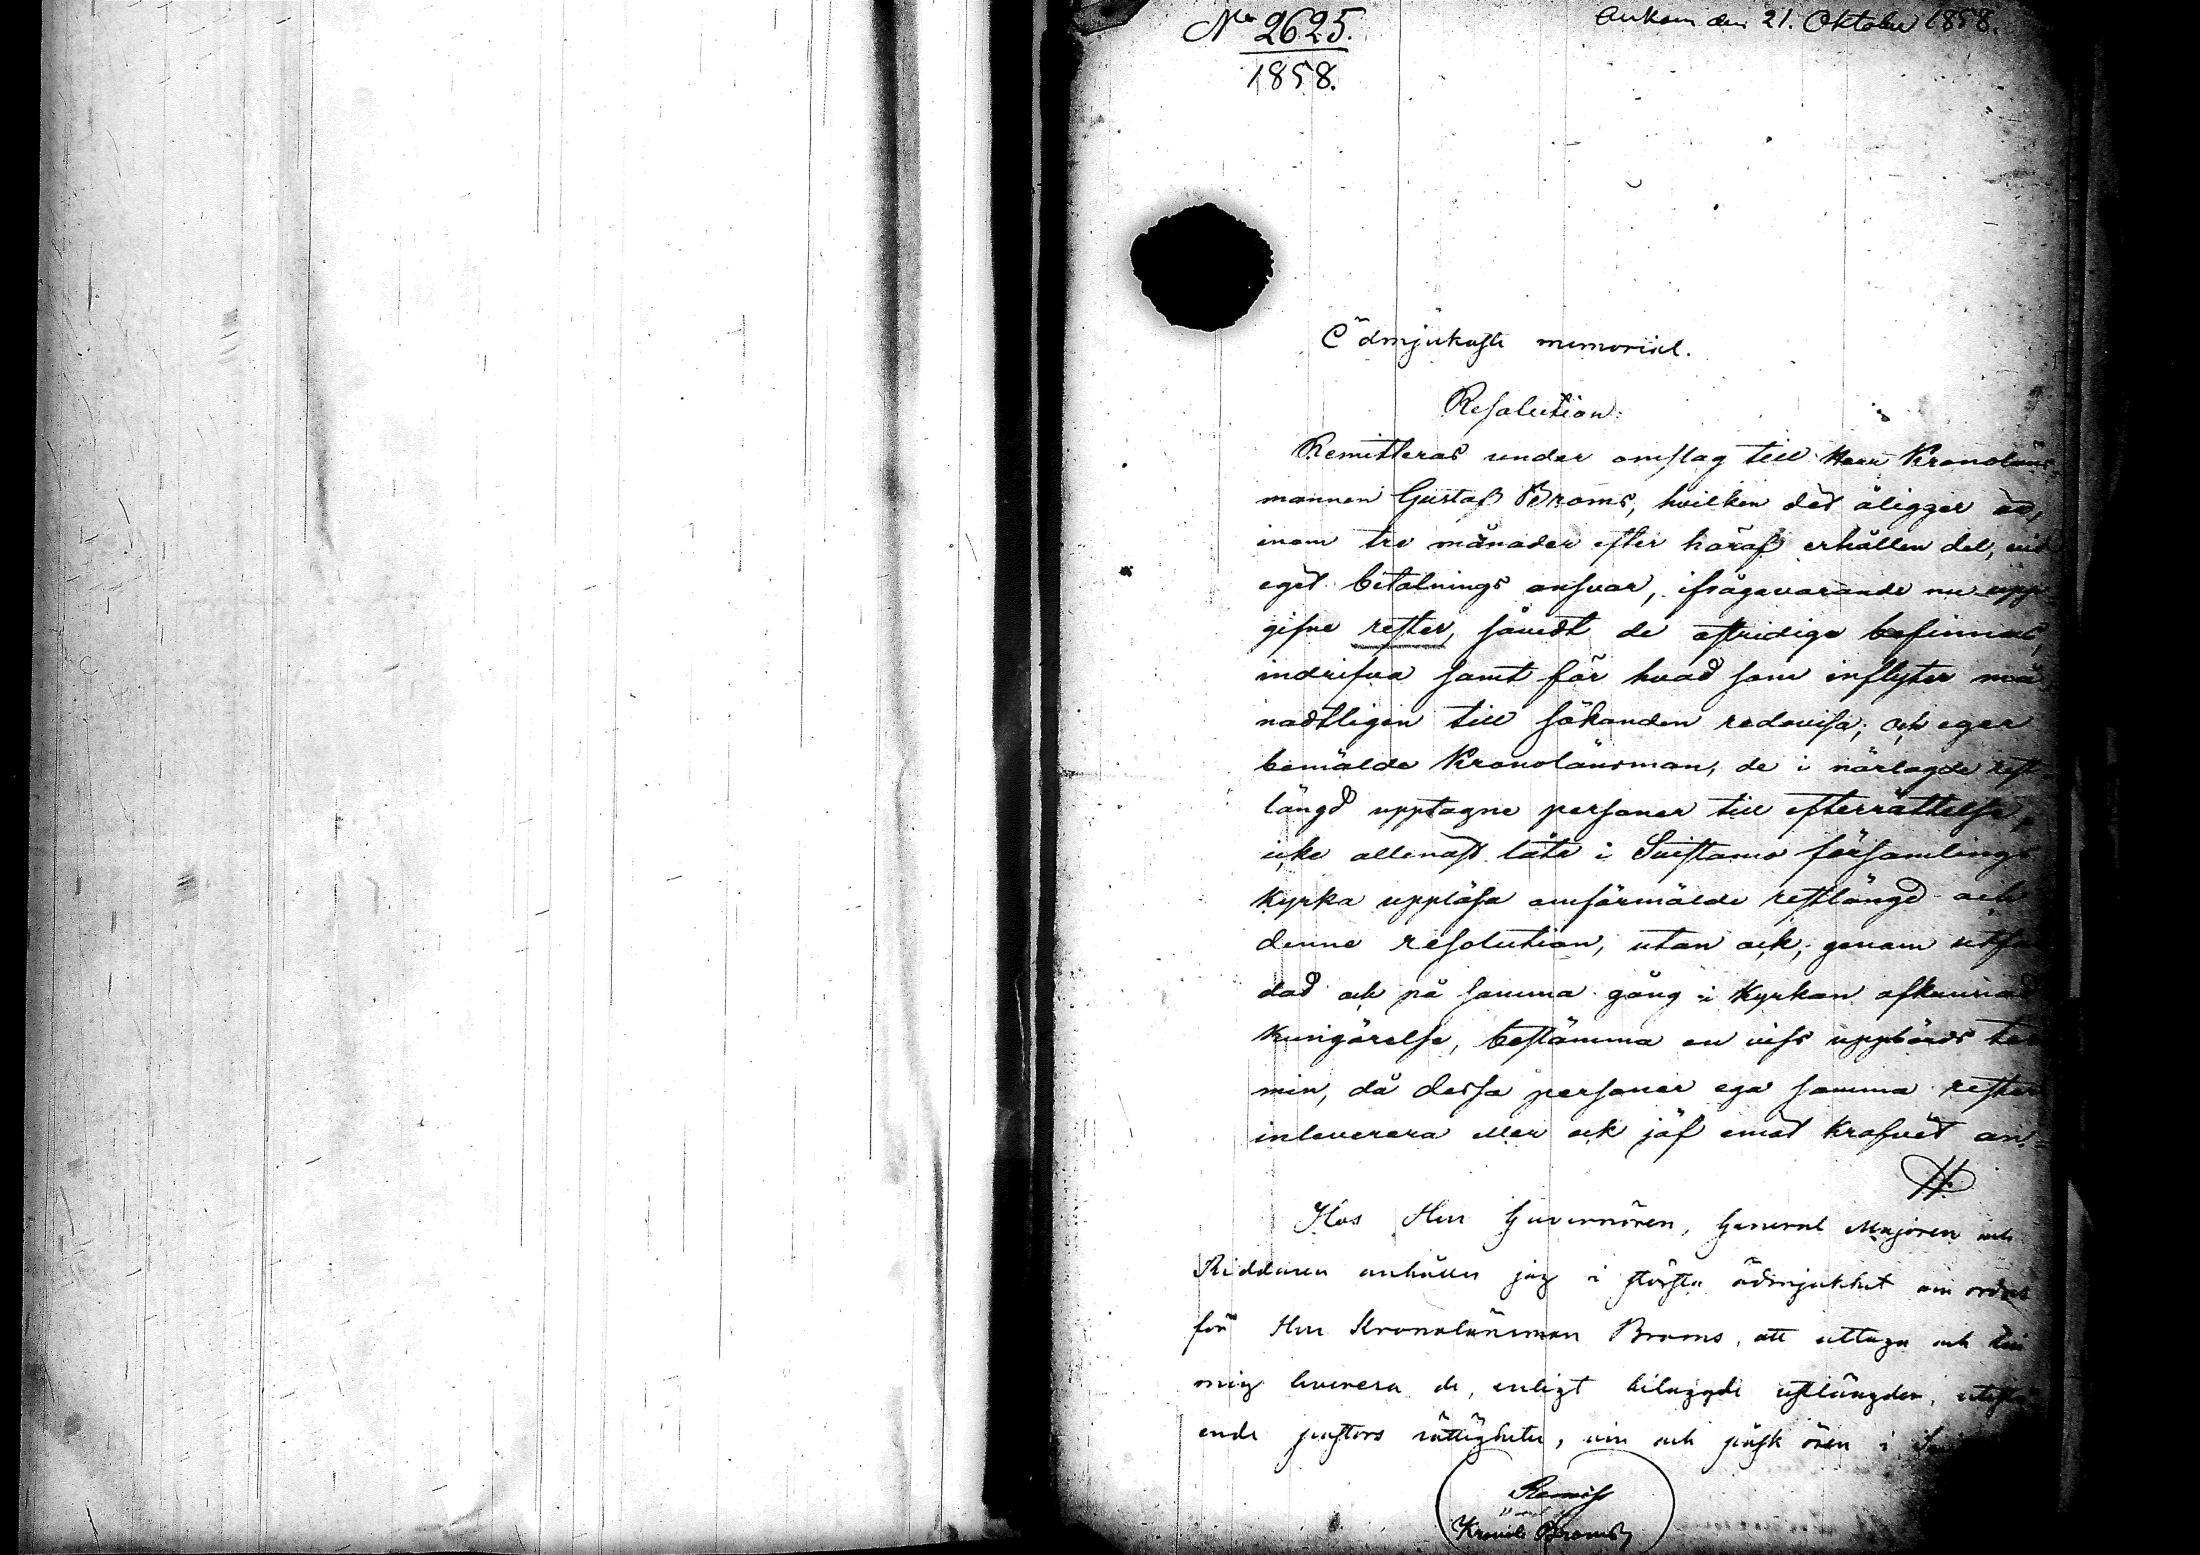 No 2625.
1858.
Ankom den 21. Oktober 1858.
Ödmjukaste memorial.
Resolution.
Remitteras under omslag till Herr Kronoläns
mannen Gustaf Broms, hvilken det åligger att,
inom tre månader efter häraf erhållen del, vid
eget betalnings ansvar, ifrågavarande nu upp
gifne rester, såvidt de ostridige befinnas,
indrifva samt för hvad som inflyter må
nadtligen till sökanden redovisa; och eger
bemälde Kronolänsman, de i närlagde rest
längd upptagne personer till efterrättelse,
icke allenast låta i Suistamo församlings
kyrka uppläsa omförmälde restlängd och
denne resolution, utan ock, genom utfär
dad och på samma gång i Kyrkan afkunnad
kungörelse, bestämma en viss uppbörds ter
min, då dessa personer ega samma rester
inleverera eller ock jäf emot krafvet an-
Hos Herr Guvernören, General Majoren och
Riddaren anhåller jag i största ödmjukhet om order
för Herr Kronolänsman Broms, att uttaga och till
mig leverera de, enligt bilaggde restlängder, utestå
ende pastors rättigheter, vin och påsk ören i
Remiss
Kronol. Broms